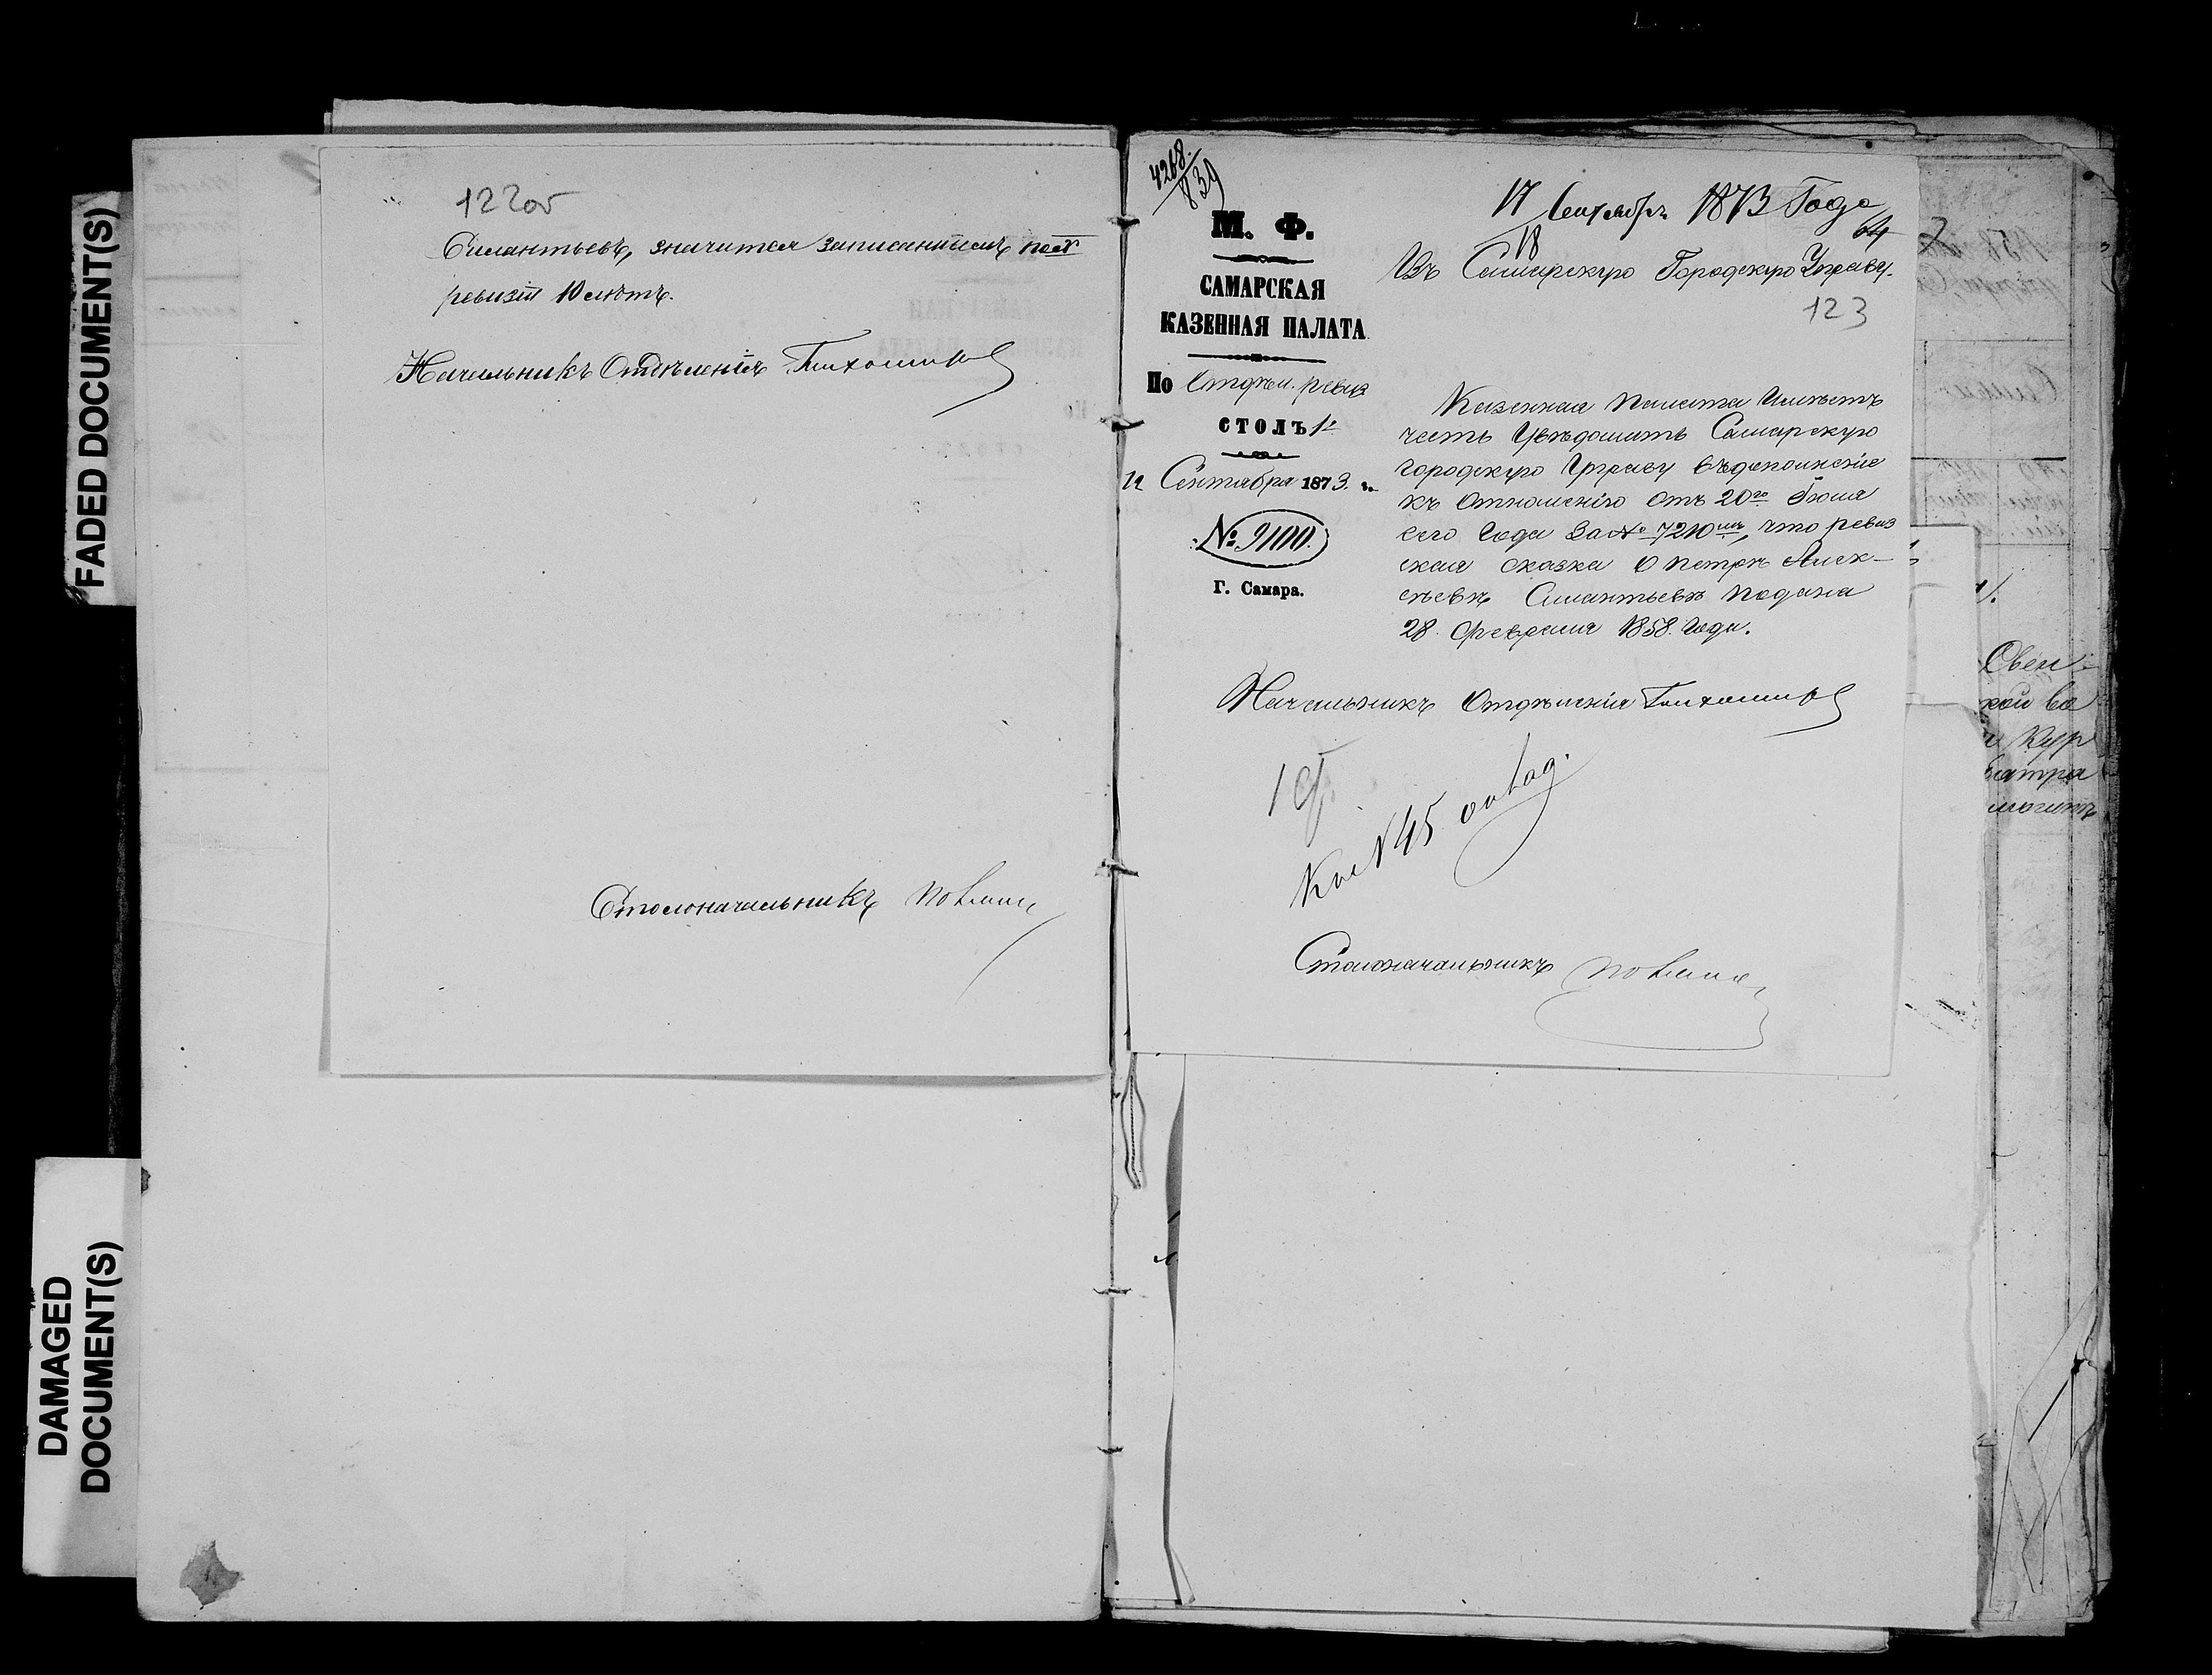 FADED DOCUMENT(S)
DAMAGED
DOCUMENT(S)
122об
Силантьевъ, значится записаннымъ по X
ревизіи 10 лѣтъ.
Начальникъ Отдѣленія Тихомировъ
Столоначальникъ
4268.
839
М. Ф.
САМАРСКАЯ
КАЗЕННАЯ ПАЛАТА
По Отдѣл. ревиз
СТОЛЪ 1й
12 Сентября 1873 г.
№ 9100.
Г. Самара.
17 Сентября 1873 Года
18
64
Въ Самарскую Городскую Управу.
123
Казенная Палата Имѣетъ
честь Увѣдомить Самарскую
городскую Управу въдополненіе
къ Отношенію отъ 20го Іюля
сего Года За № 7210мъ, что ревиз
ская сказка О Петрѣ Алек-
сѣевѣ Силантьевѣ подана
28 Февраля 1858 Года.
Начальникъ Отдѣленія Тихомировъ
Кж № 45
Столоначальникъ
Овеч-
кой во
и Кур